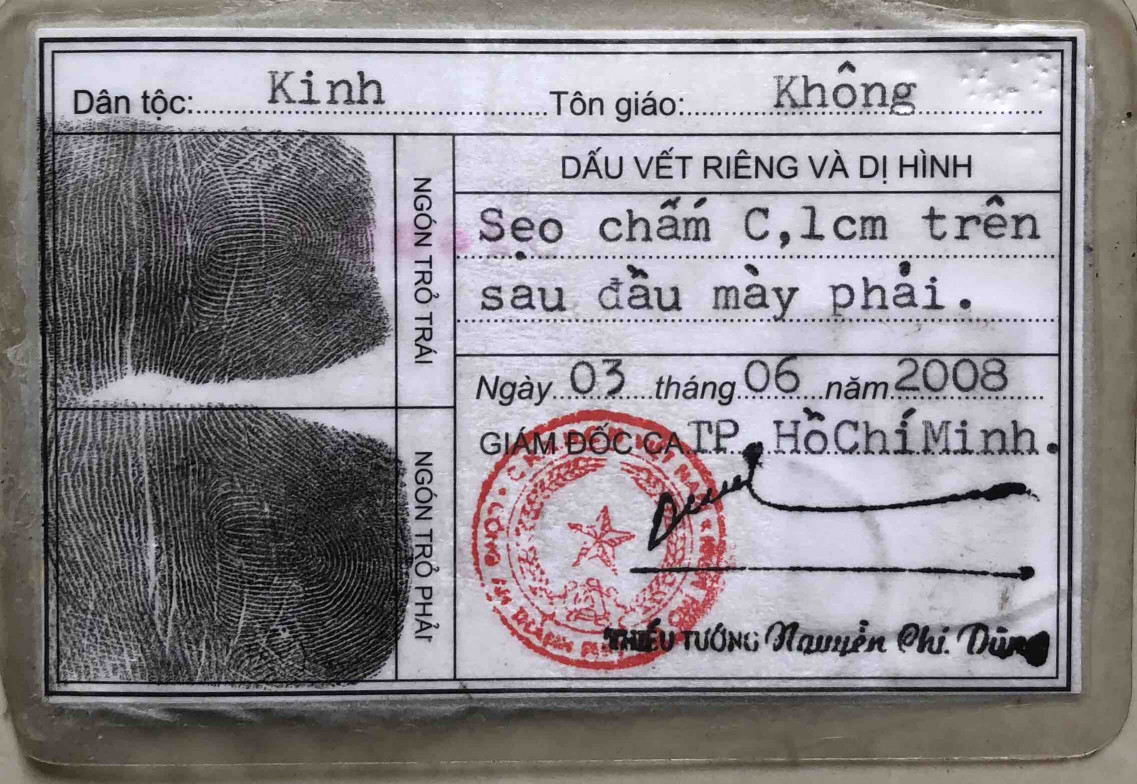 Dân tộc: Kinh Tôn giáo: Không
NGÓN TRỎ TRÁI
NGÓN TRỎ PHẢI
DẤU VẾT RIÊNG VÀ DỊ HÌNH
Sẹo chấm C,1cm trên
sau đầu mày phải.
Ngày 03 tháng 06 năm 2008
GIÁM ĐỐC CA TP. HồChíMinh.
THIẾU TƯỚNG Nguyễn Chí Dũng